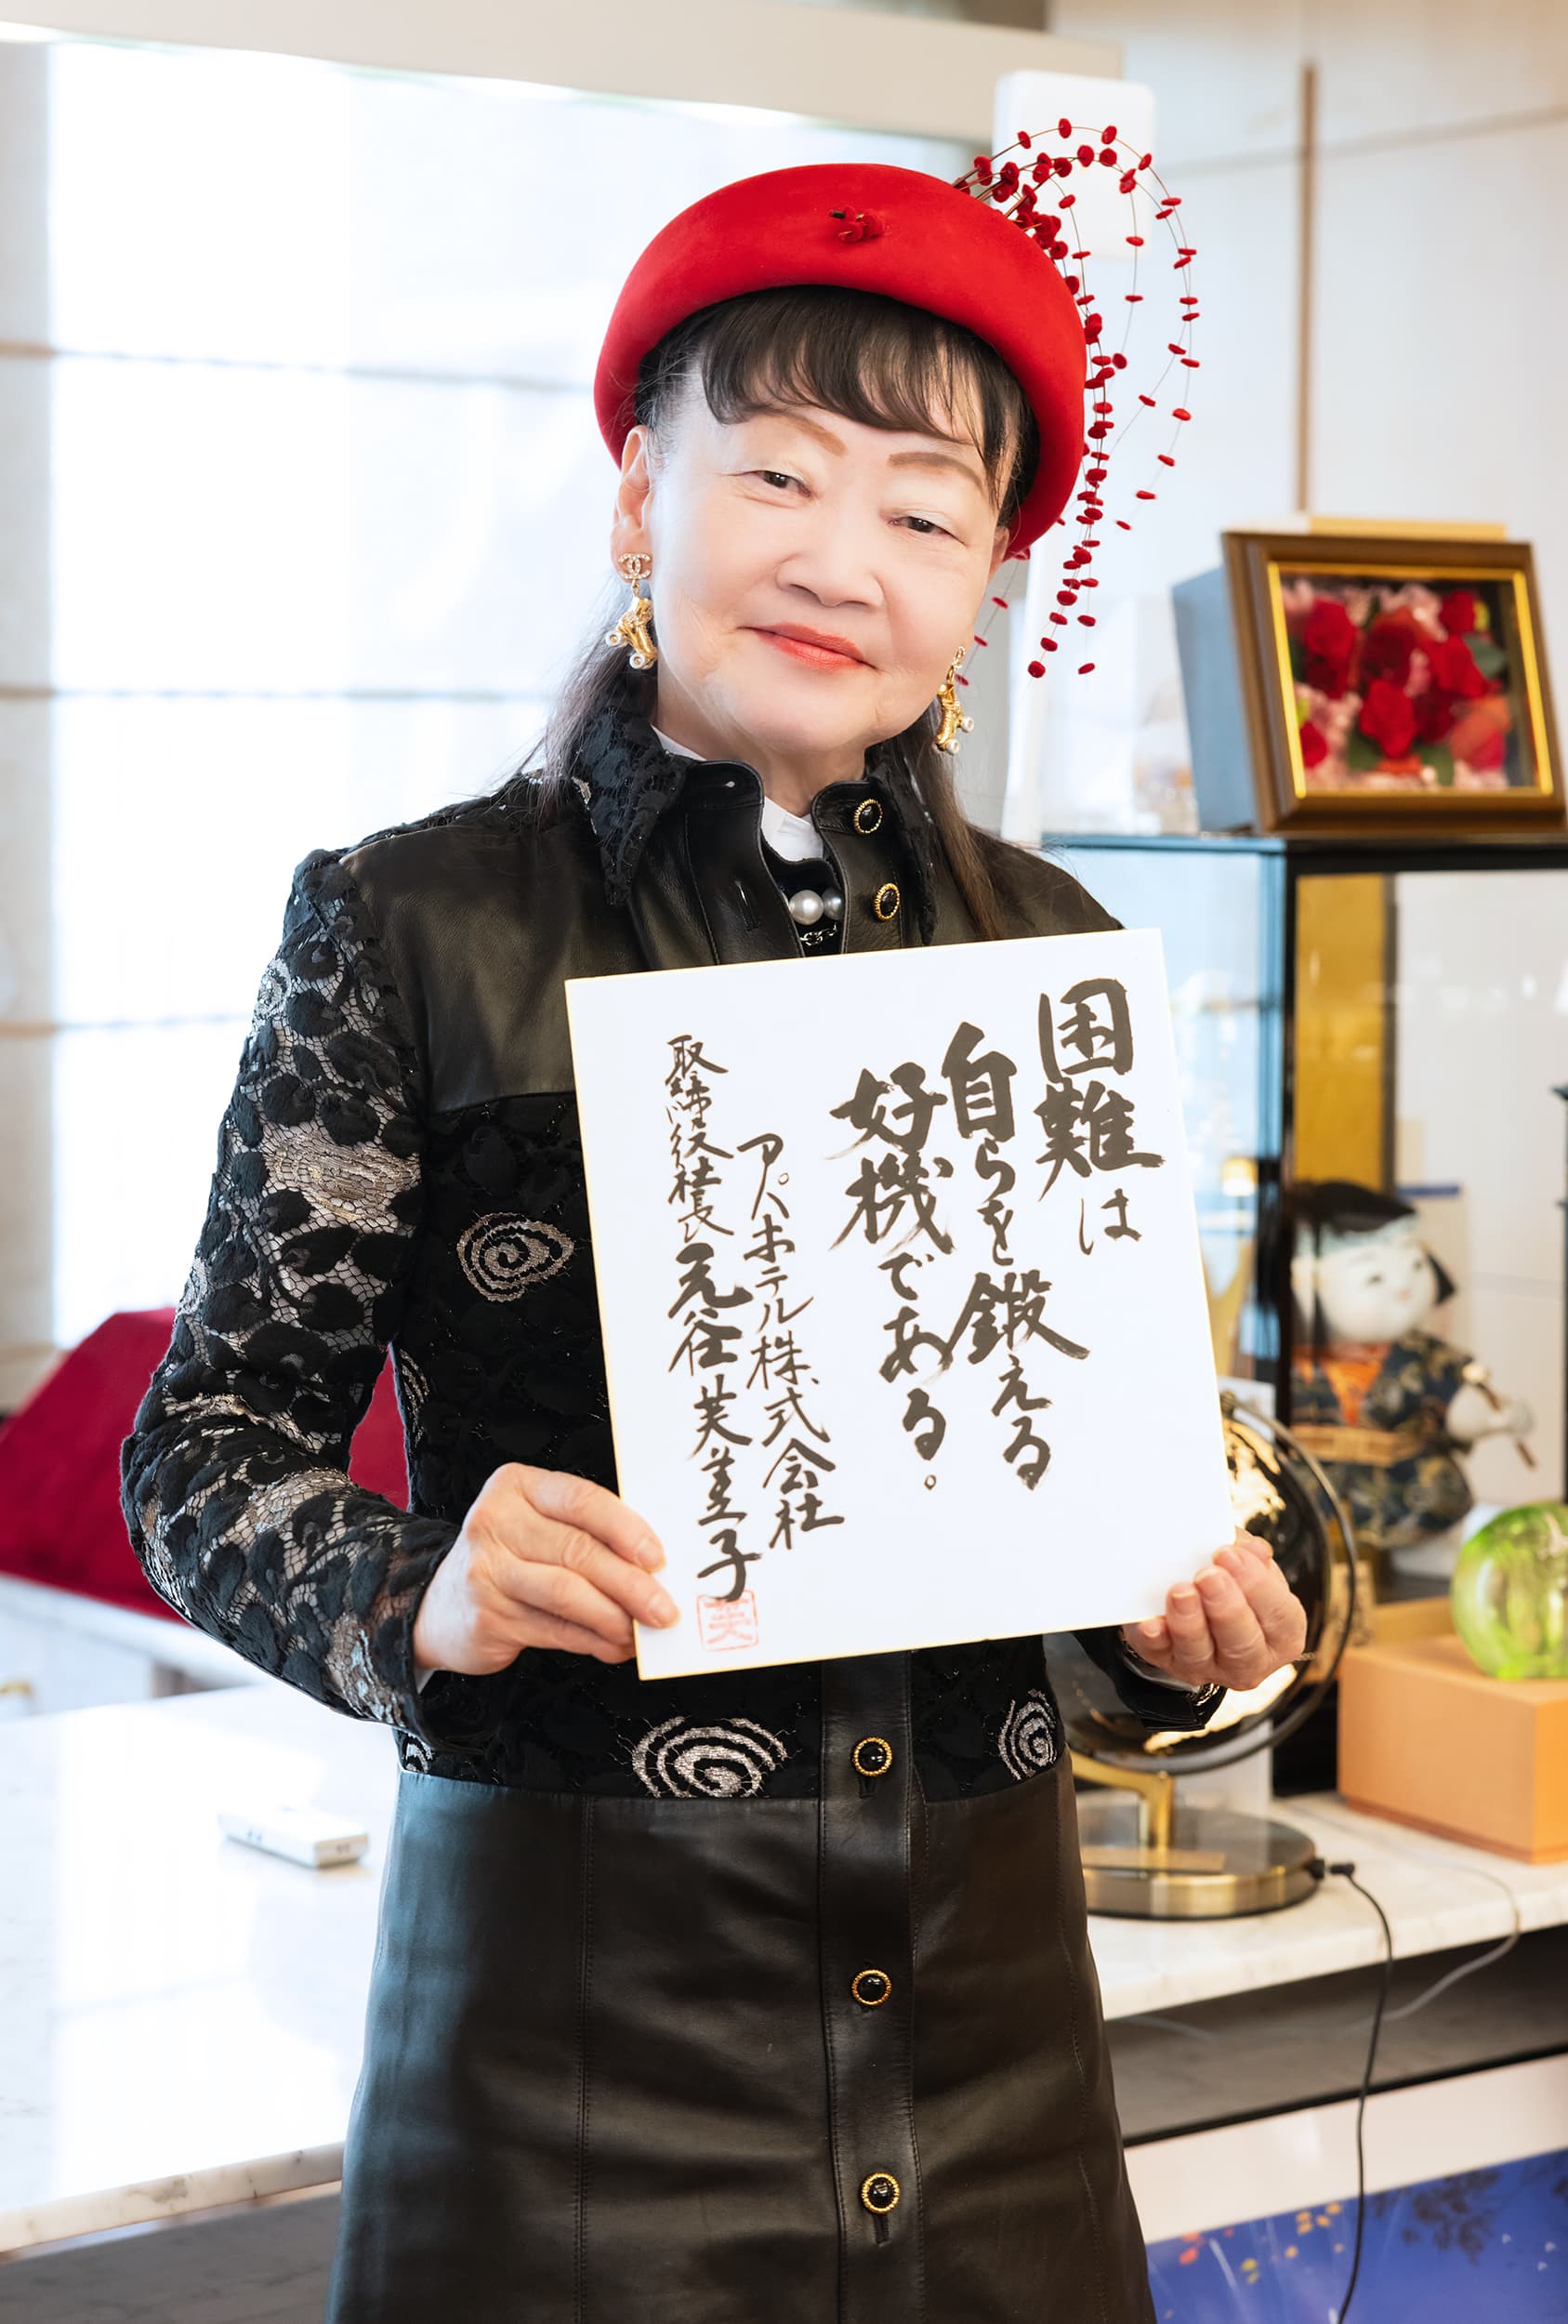 困難は
自らを鍛える
好機である。
アパホテル株式会社
取締役社長 元谷芙美子
芙